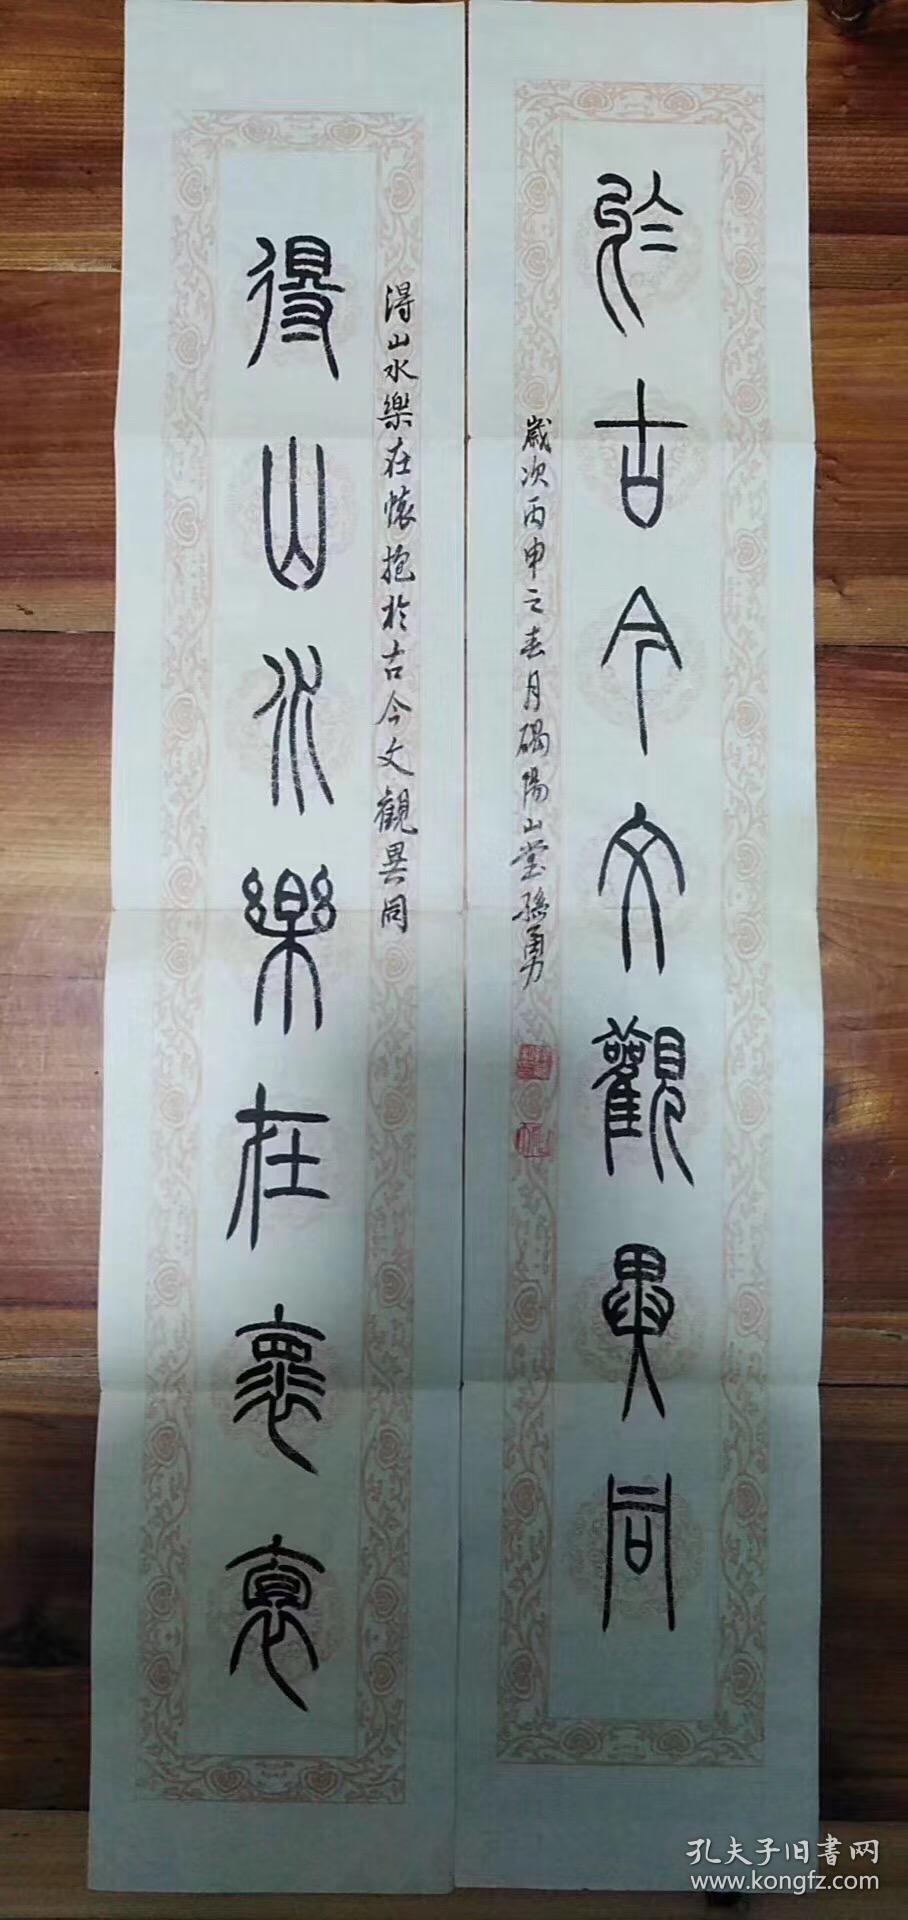 得山水樂在褱裒
得山水樂在懷抱於古今文觀異同
於古今文觀異同
歲次丙申之春月碣陽山堂孫勇
孔夫子旧書网
www.kongfz.com